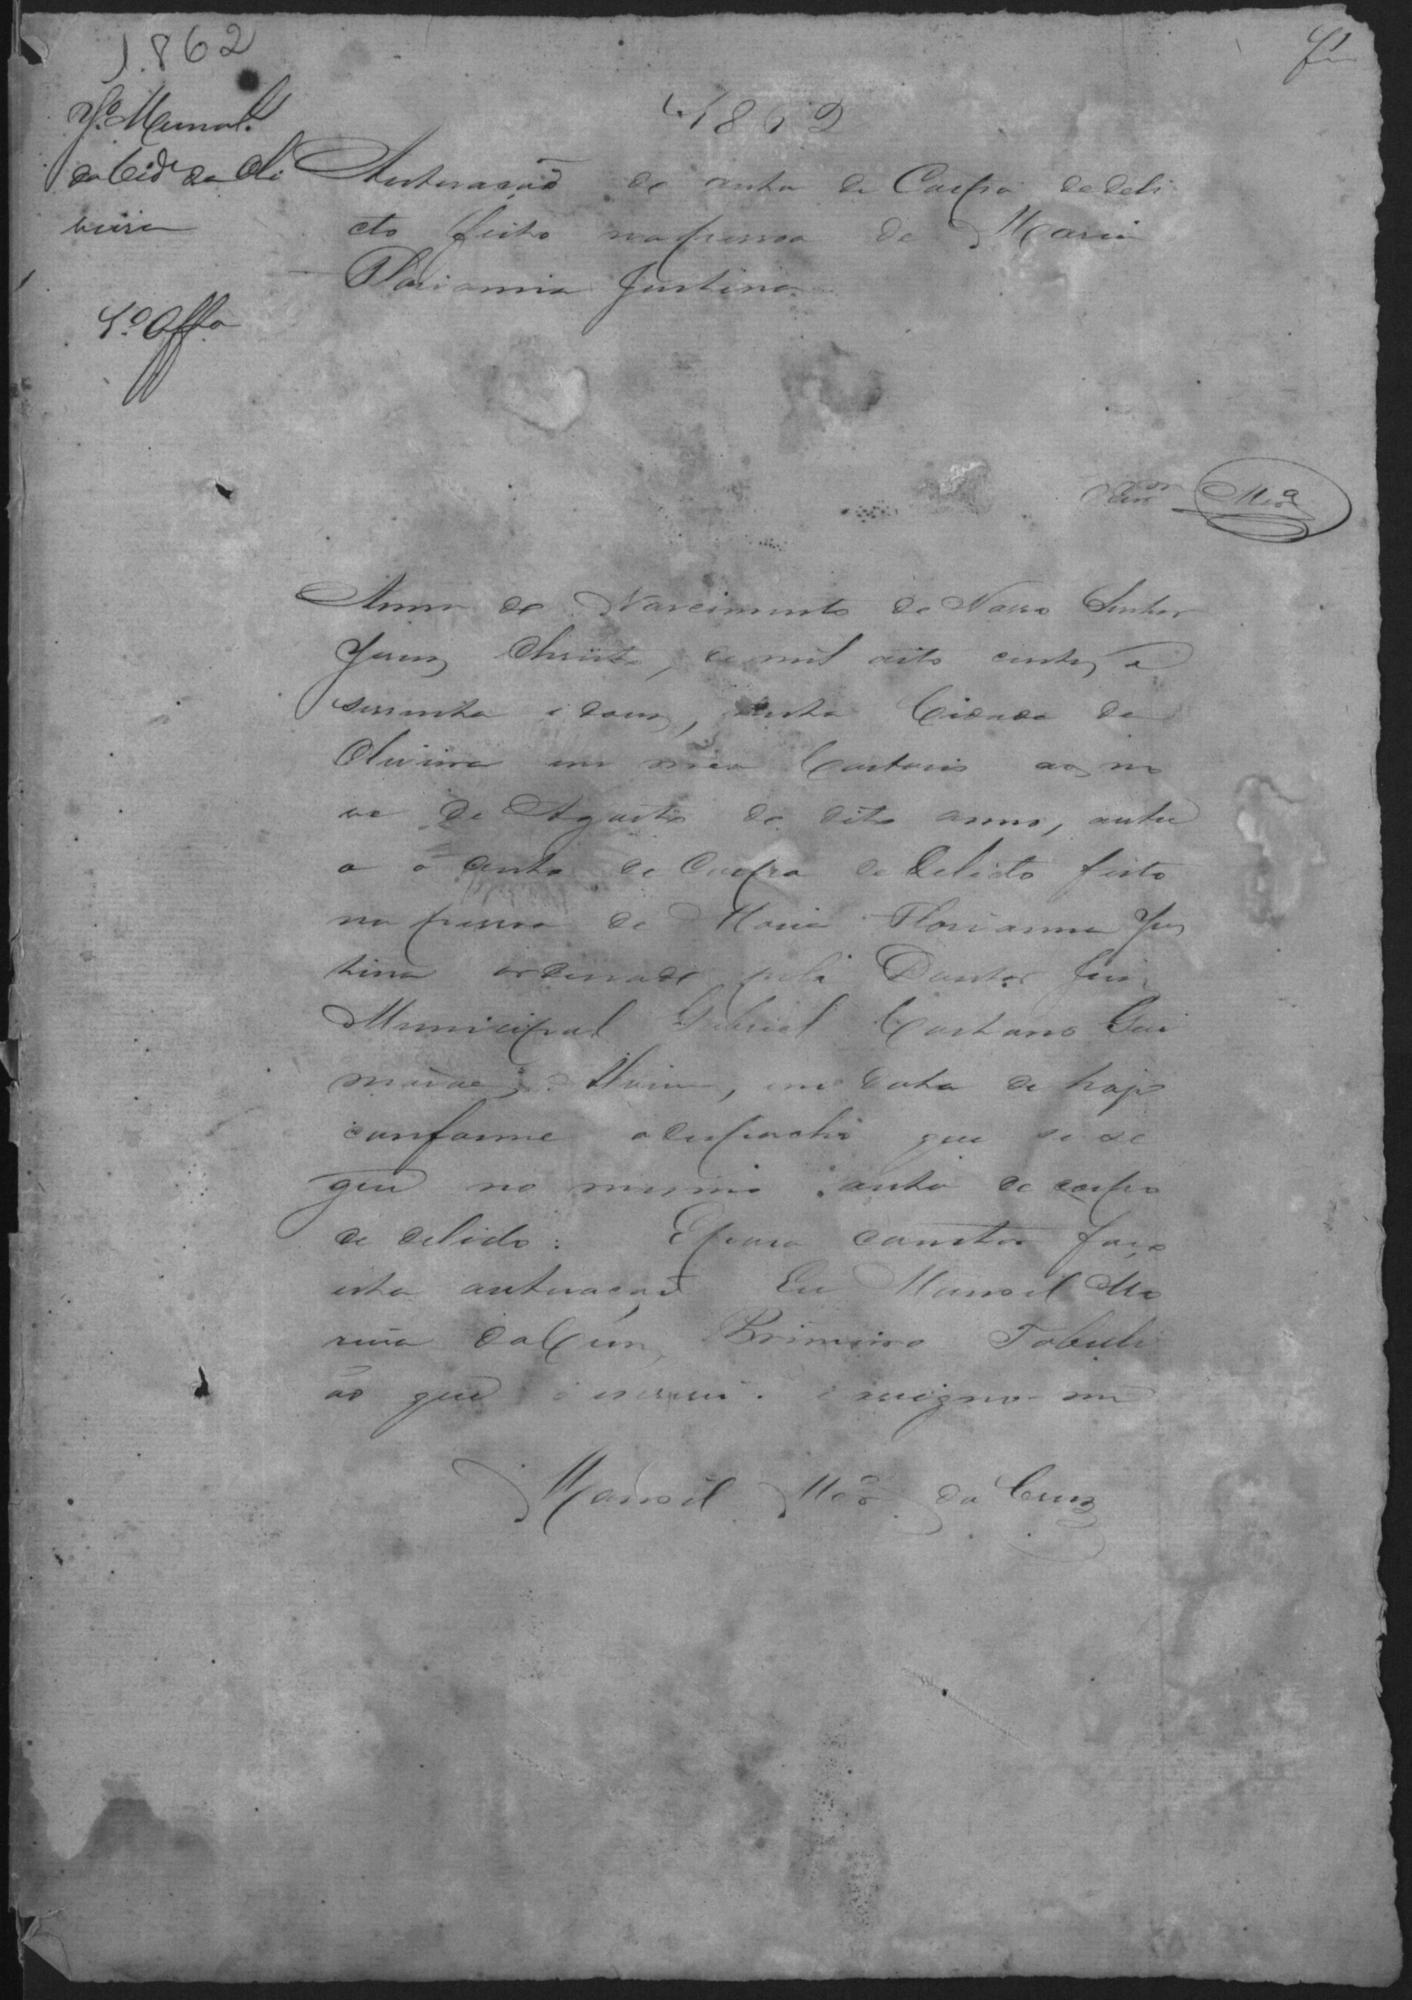 1862
Jº. Munal.
da Cidᵉ de Oli
veira
1º. Offº
1862
Autuação de auto de Corpo dedeli
cto feito napessoa de Maria
Florianna Justina
Escrᵃᵐ Mᵒʳᵃ
Anno do Nascimento de Nosso Senhor
Jesus Christo, de mil oito centos e
sessenta e dous, nesta Cidade de
Oliveira em meo Cartorio aos no
ve de Agosto do dito anno, autu
o o auto de Corpo de Delicto feito
na pessoa de Maria Florianna Jus
tina ordenado pelo Doutor Juis
Municipal Gabriel Caetano Gui
marães, em data de hoje
conforme o despacho que se se
gue no mesmo auto de corpo
de delicto. Epara constar faço
esta autuação Eu Manoel Mo
reira daCruz, Primeiro Tabeli
ão que o escrevi. e assigno-me
Manoel Mᵒʳᵃ da Cruz